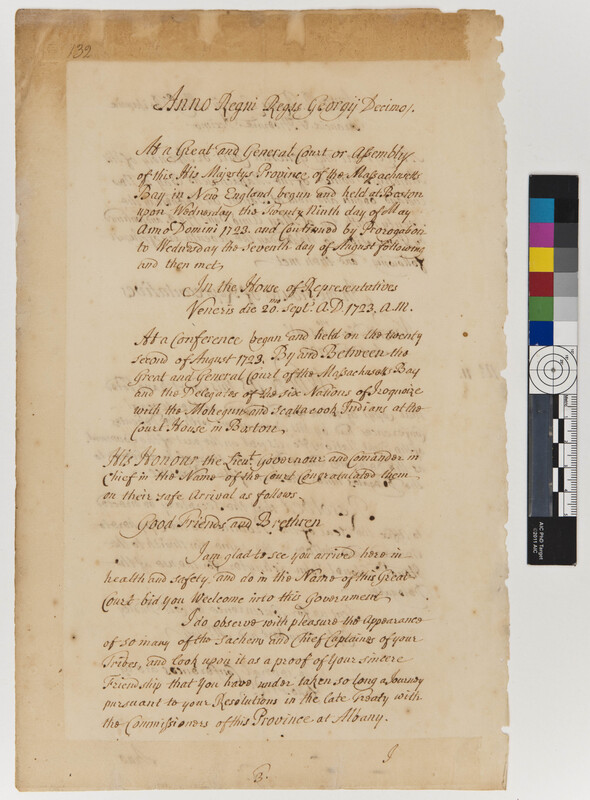 132
Anno Regni Regis Georgij Decimo/.
At a Great and General Court or Assembly
of this His Majestys Province of the Massachusetts
Bay in New England begun and held at Boston
upon Wednesday the Twenty Ninth day of May
Anno Domini 1723. and Continued by Prorogation
to Wednesday the Seventh day of August following
and then met,
In the House of Representatives
Veneris die 20mo Septr. A.D. 1723, A.M.
At a Conference began and held on the twenty
second of August 1723. By and Between the
Great and General Court of the Massachusets Bay
and the Delegates of the Six Nations of Iroquoize
with the Mohegun and Scattacook Indians at the
Court House in Boston,
His Honour the Lieut. Governour and Comander in
Chief in the Name of the Court Congratulated them
on their safe Arrival as follows,
Good Friends and Brethren
I am glad to see you arrived here in
health and safety, and do in the Name of this Great
Court bid you Welcome into this Government
I do observe with pleasure the Appearance
of so many of the Sachems and Chief Captaines of your
Tribes, and look upon it as a proof of Your sincere
Friendship that You have under taken so long a Journey
pursuant to your Resolutions in the late Treaty with
the Commissioners of this Province at Albany.
I
B.
AIC PhD Target
©2011 AIC